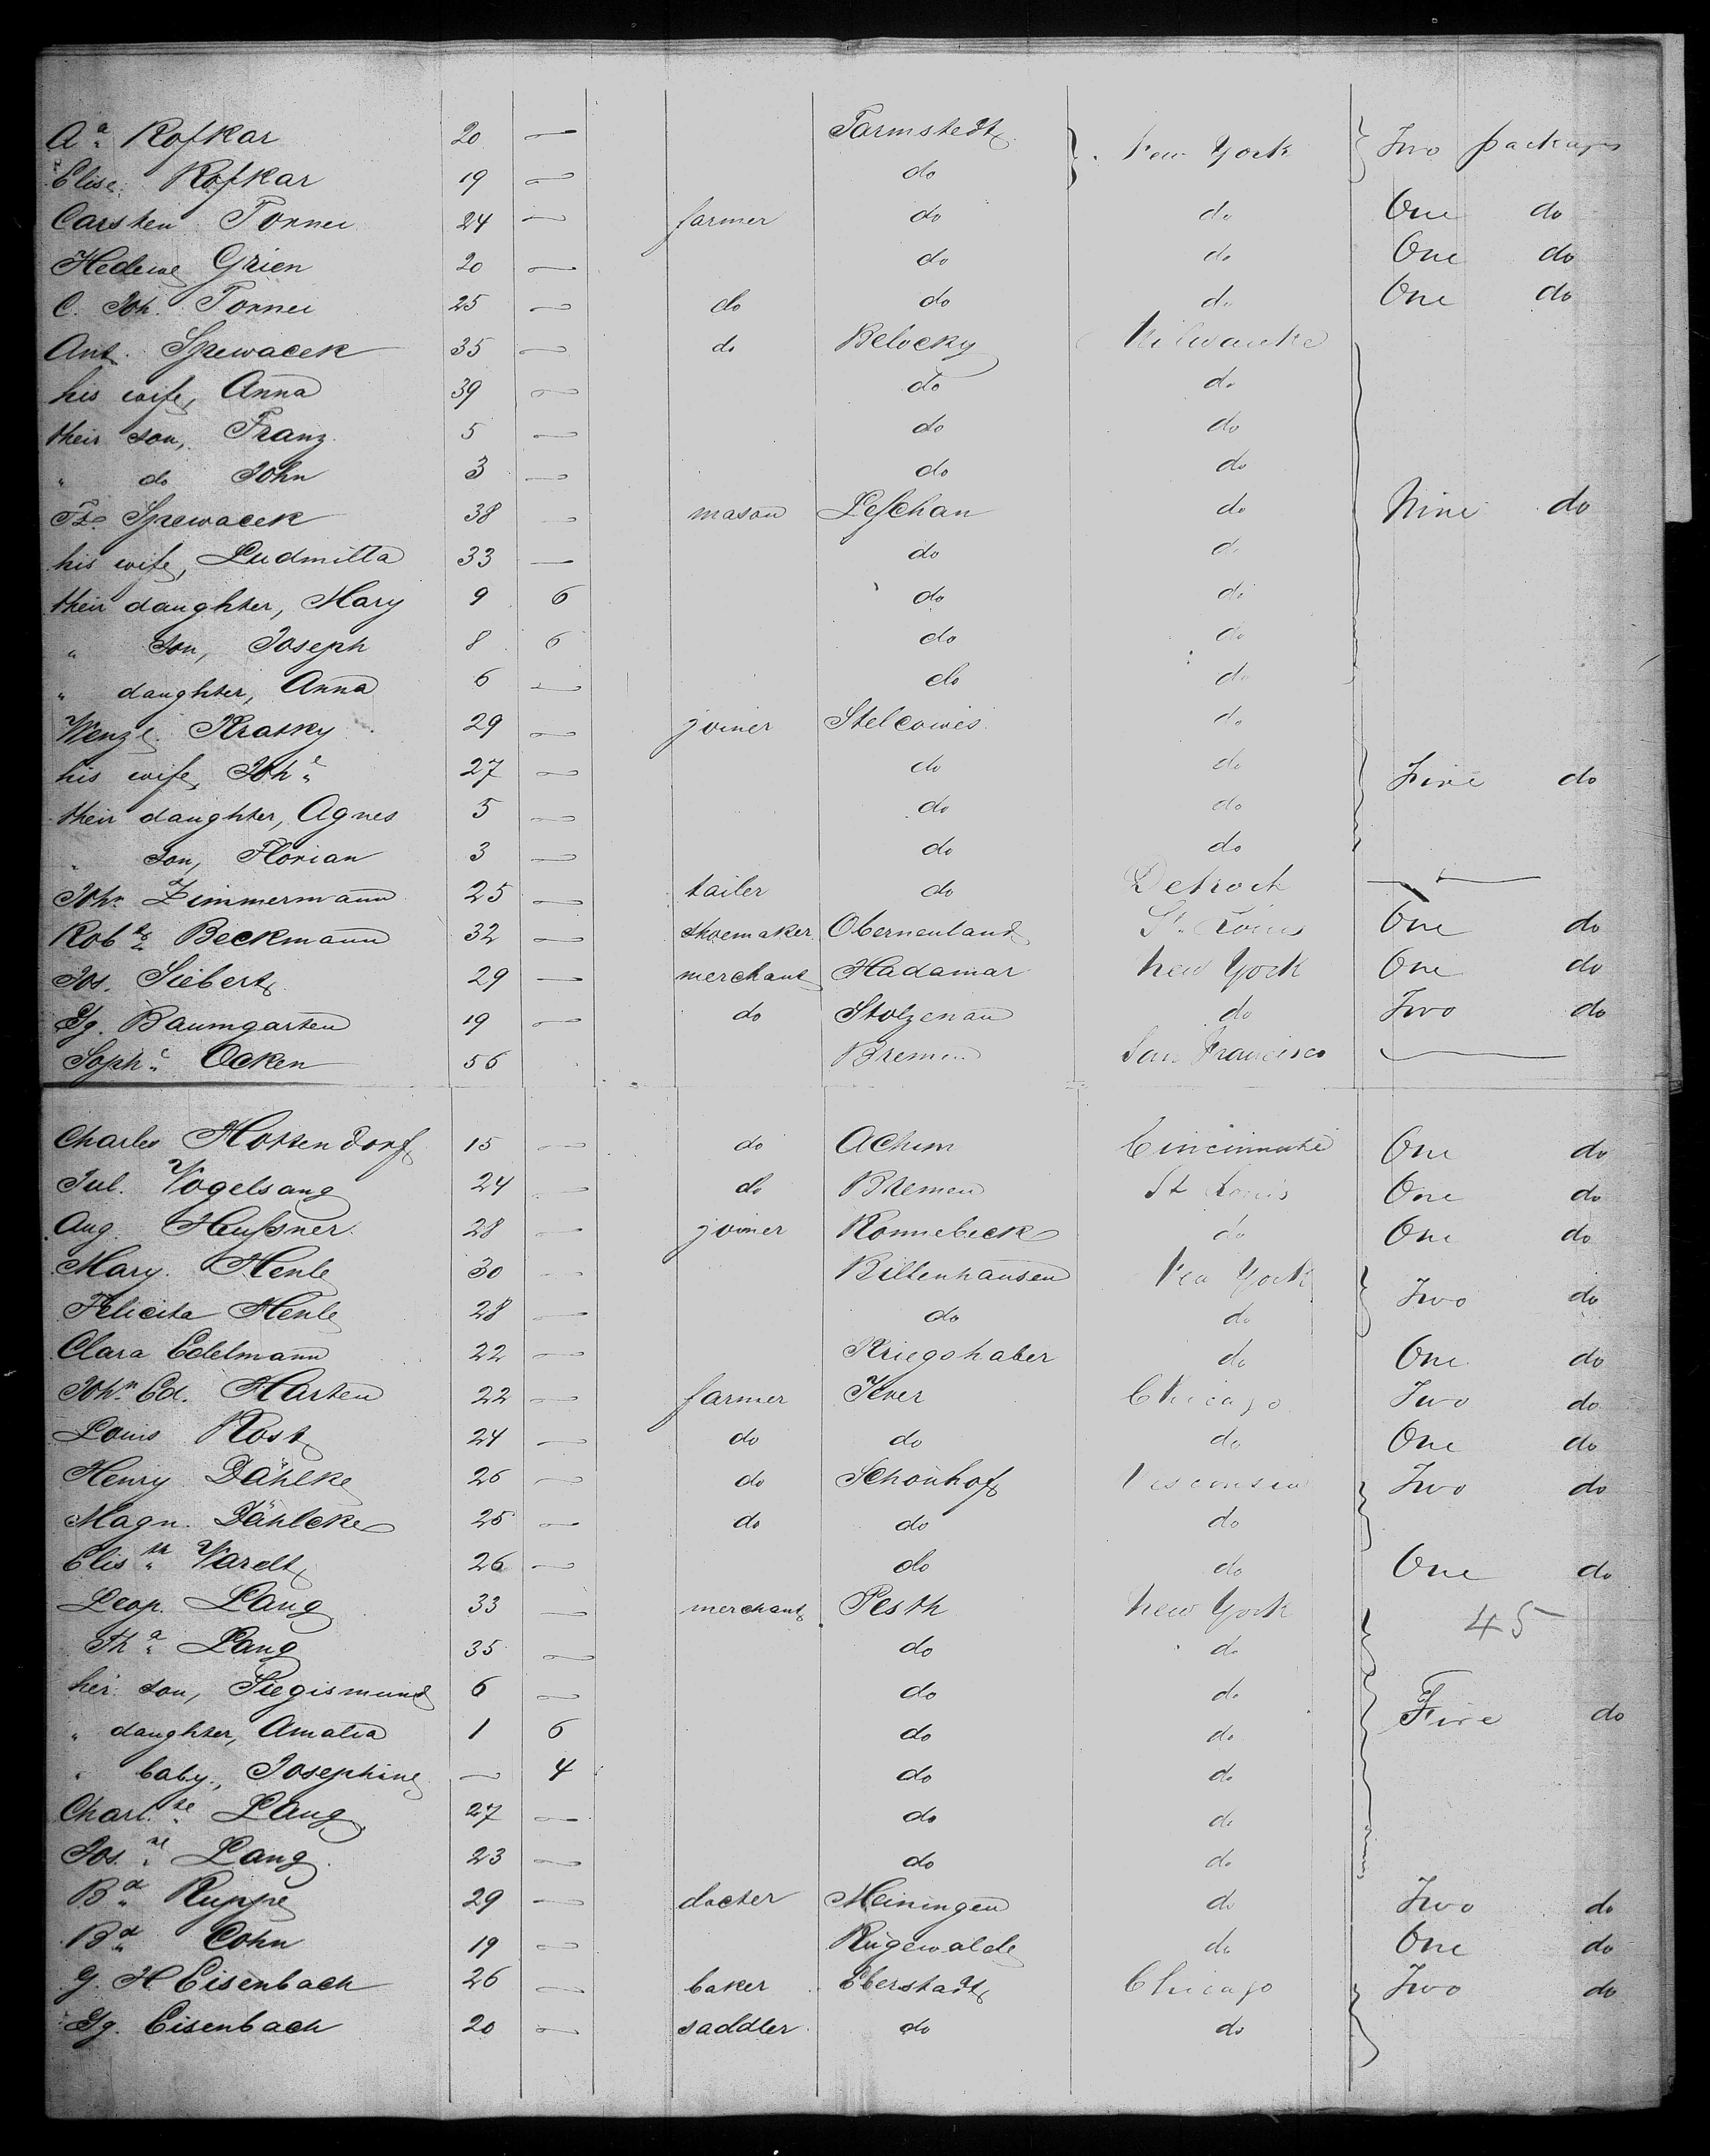 Aa. Rofkar 20 — Tarmstedt New York Two packages
Elise Rofkar 19 — do
Carsten Torner 24 — farmer do do One do
Hedewg Grien 20 — do do One do
C. Joh. Torner 25 — do do do One do
Ant. Sprewacek 35 — do Belocky Milwaukie
his wife, Anna 39 — do do
their son, Franz 5 — do do
" do John 3 — do do
Fz. Sprewacek 38 — mason Leschan do Nine do
his wife, Ludmilla 33 — do do
their daughter, Mary 9 6 do do
" son, Joseph 8 6 do do
" daughter, Anna 6 — do do
Wenzl. Kratky 29 — joiner Stelcowes do
his wife, Joh.e 27 — do do Five do
their daughter, Agnes 5 — do do
" son, Florian 3 — do do
Joh. Zimmermann 25 — tailer do Detroit —
Robt. Beckmann 32 — shoemaker Oberneuland St. Louis One do
Jos. Siebert 29 — merchant Hadamar New York One do
Gg. Baumgarten 19 — do Stolzenau do Two do
Soph.e Ocken 56 Bremen San Francisco —
Charles Hottendorf 15 — do Achim Cincinnati One do
Jul. Vogelsang 24 — do Bremen St Louis One do
Aug. Heußner 28 — joiner Ronnebeck do One do
Mary Henle 30 — Billenhausen New York Two do
Felicita Henle 28 — do do
Clara Edelmann 22 — Kriegshaber do One do
John. Ed. Harten 22 — farmer Jever Chicago Two do
Louis Rost 24 — do do do One do
Henry Dählke 26 — do Schönhof Wisconsin Two do
Magn. Dählcke 25 — do do do
Elisth. Vardt 26 — do do One do
Leop. Lang 33 — merchant Pesth New York 45
Tha. Lang 35 — do do
her son, Siegismund 6 — do do Five do
" daughter, Amalia 1 6 do do
" baby, Josephine — 4 do do
Charl.te Lang 27 — do do
Jos.ne Lang 23 — do do
Bd. Ruppe 29 — docter Meiningen do Two do
Bd. Cohn 19 — Rügewalde do One do
G. H. Eisenbach 26 — baker Eberstadt Chicago Two do
Gg. Eisenbach 20 — saddler do do